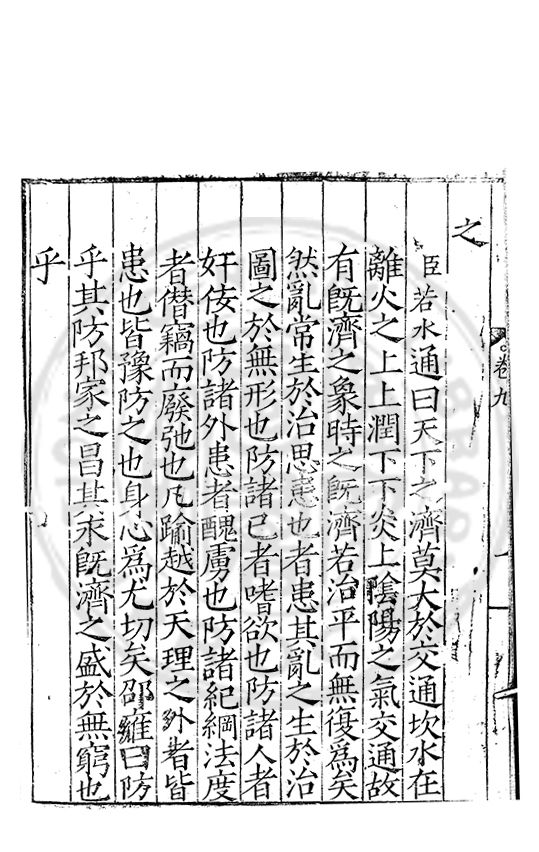 卷九
之
臣若水通曰天下之濟莫大於交通坎水在
離火之上上潤下下炎上陰陽之氣交通故
有旣濟之象時之旣濟若治平而無復爲矣
然亂常生於治思患也者患其亂之生於治
圖之於無形也防諸已者嗜欲也防諸人者
奸佞也防諸外患者醜虜也防諸紀綱法度
者僣竊而廢弛也凡踰越於天理之外者皆
患也皆豫防之也身心爲尤切矣邵雍曰防
乎其防邦家之昌其永旣濟之盛於無窮也
乎